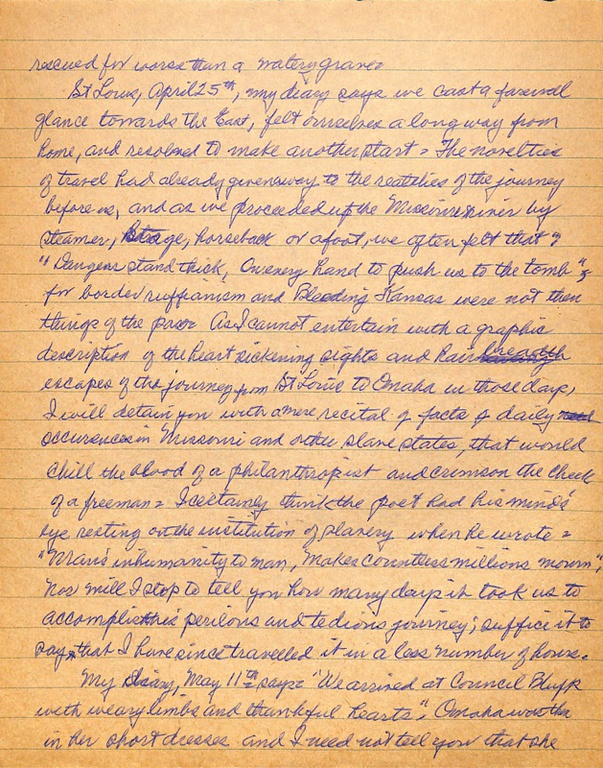 rescued for worse than a watery grave.
St Louis, April 25th, my diary says we cast a farewell
glance towards the East, felt ourselves a long way from
home, and resolved to make another start. The novelties
of travel had already given way to the realities of the journey
before us, and as we proceeded up the Missouri river by
steamer, stage, horseback or afoot, we often felt that
"Dangers stand thick, On every hand to push us to the tomb";
for border ruffianism and Bleeding Kansas were not then
things of the past. As I cannot entertain with a graphic
description of the heart sickening sights and hair breadth
escapes of the journey from St Louis to Omaha in those days,
I will detain you with a mere recital of facts of daily
occurences in Missouri and other slave states, that would
chill the blood of a philanthropist and crimson the cheek
of a freeman. I certainly think the poet had his mind's
eye resting on the institution of slavery when he wrote.
"Man's inhumanity to man, Makes countless millions mourn";
Nor will I stop to tell you how many days it took us to
accomplish this perilous and tedious journey; suffice it to
say, that I have since travelled it in a less number of hours.
My diary, May 11th says "We arrived at Council Bluffs
with weary limbs and thankful hearts". Omaha was then
in her short dresses and I need not tell you that she